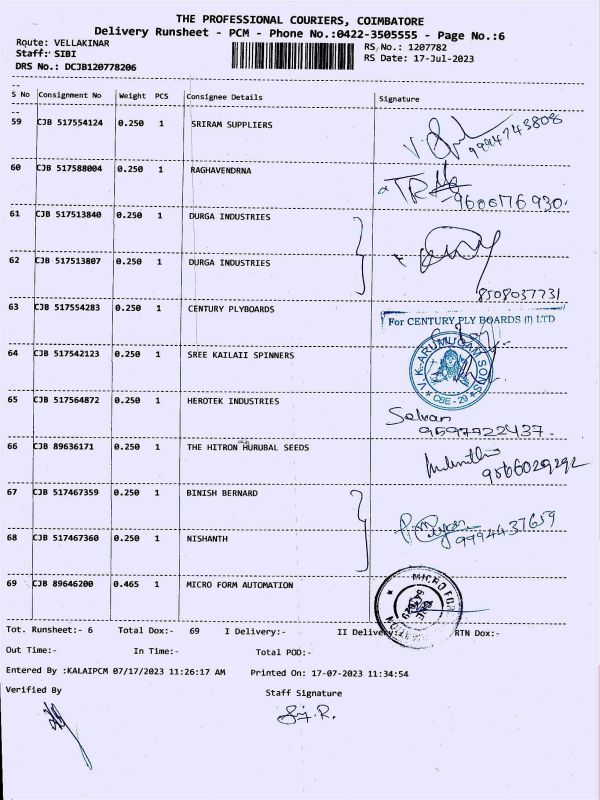 THE PROFESSIONAL COURIERS, COIMBATORE
Delivery Runsheet - PCM - Phone No.:0422-3505555 - Page No.:6
Route: VELLAKINAR
Staff: SIBI
DRS No.: DCJB120778206
RS No.: 1207782
RS Date: 17-Jul-2023
S No Consignment No Weight PCS Consignee Details Signature
59 CJB 517554124 0.250 1 SRIRAM SUPPLIERS 9994743808
60 CJB 517588004 0.250 1 RAGHAVENDRNA 9600776930
61 CJB 517513840 0.250 1 DURGA INDUSTRIES
62 CJB 517513807 0.250 1 DURGA INDUSTRIES 8508037731
63 CJB 517554283 0.250 1 CENTURY PLYBOARDS For CENTURY PLY BOARDS (I) LTD
64 CJB 517542123 0.250 1 SREE KAILAII SPINNERS V.K. ARUMUGAM SONS CBE - 29
65 CJB 517564872 0.250 1 HEROTEK INDUSTRIES Selvan
9597722437.
66 CJB 89636171 0.250 1 THE HITRON HURUBAL SEEDS 9566029292
67 CJB 517467359 0.250 1 BINISH BERNARD 9994437659
68 CJB 517467360 0.250 1 NISHANTH
69 CJB 89646200 0.465 1 MICRO FORM AUTOMATION MICRO FOR
Tot. Runsheet:- 6 Total Dox:- 69 I Delivery:- II Delivery:- RTN Dox:-
Out Time:- In Time:- Total POD:-
Entered By :KALAIPCM 07/17/2023 11:26:17 AM Printed On: 17-07-2023 11:34:54
Verified By Staff Signature